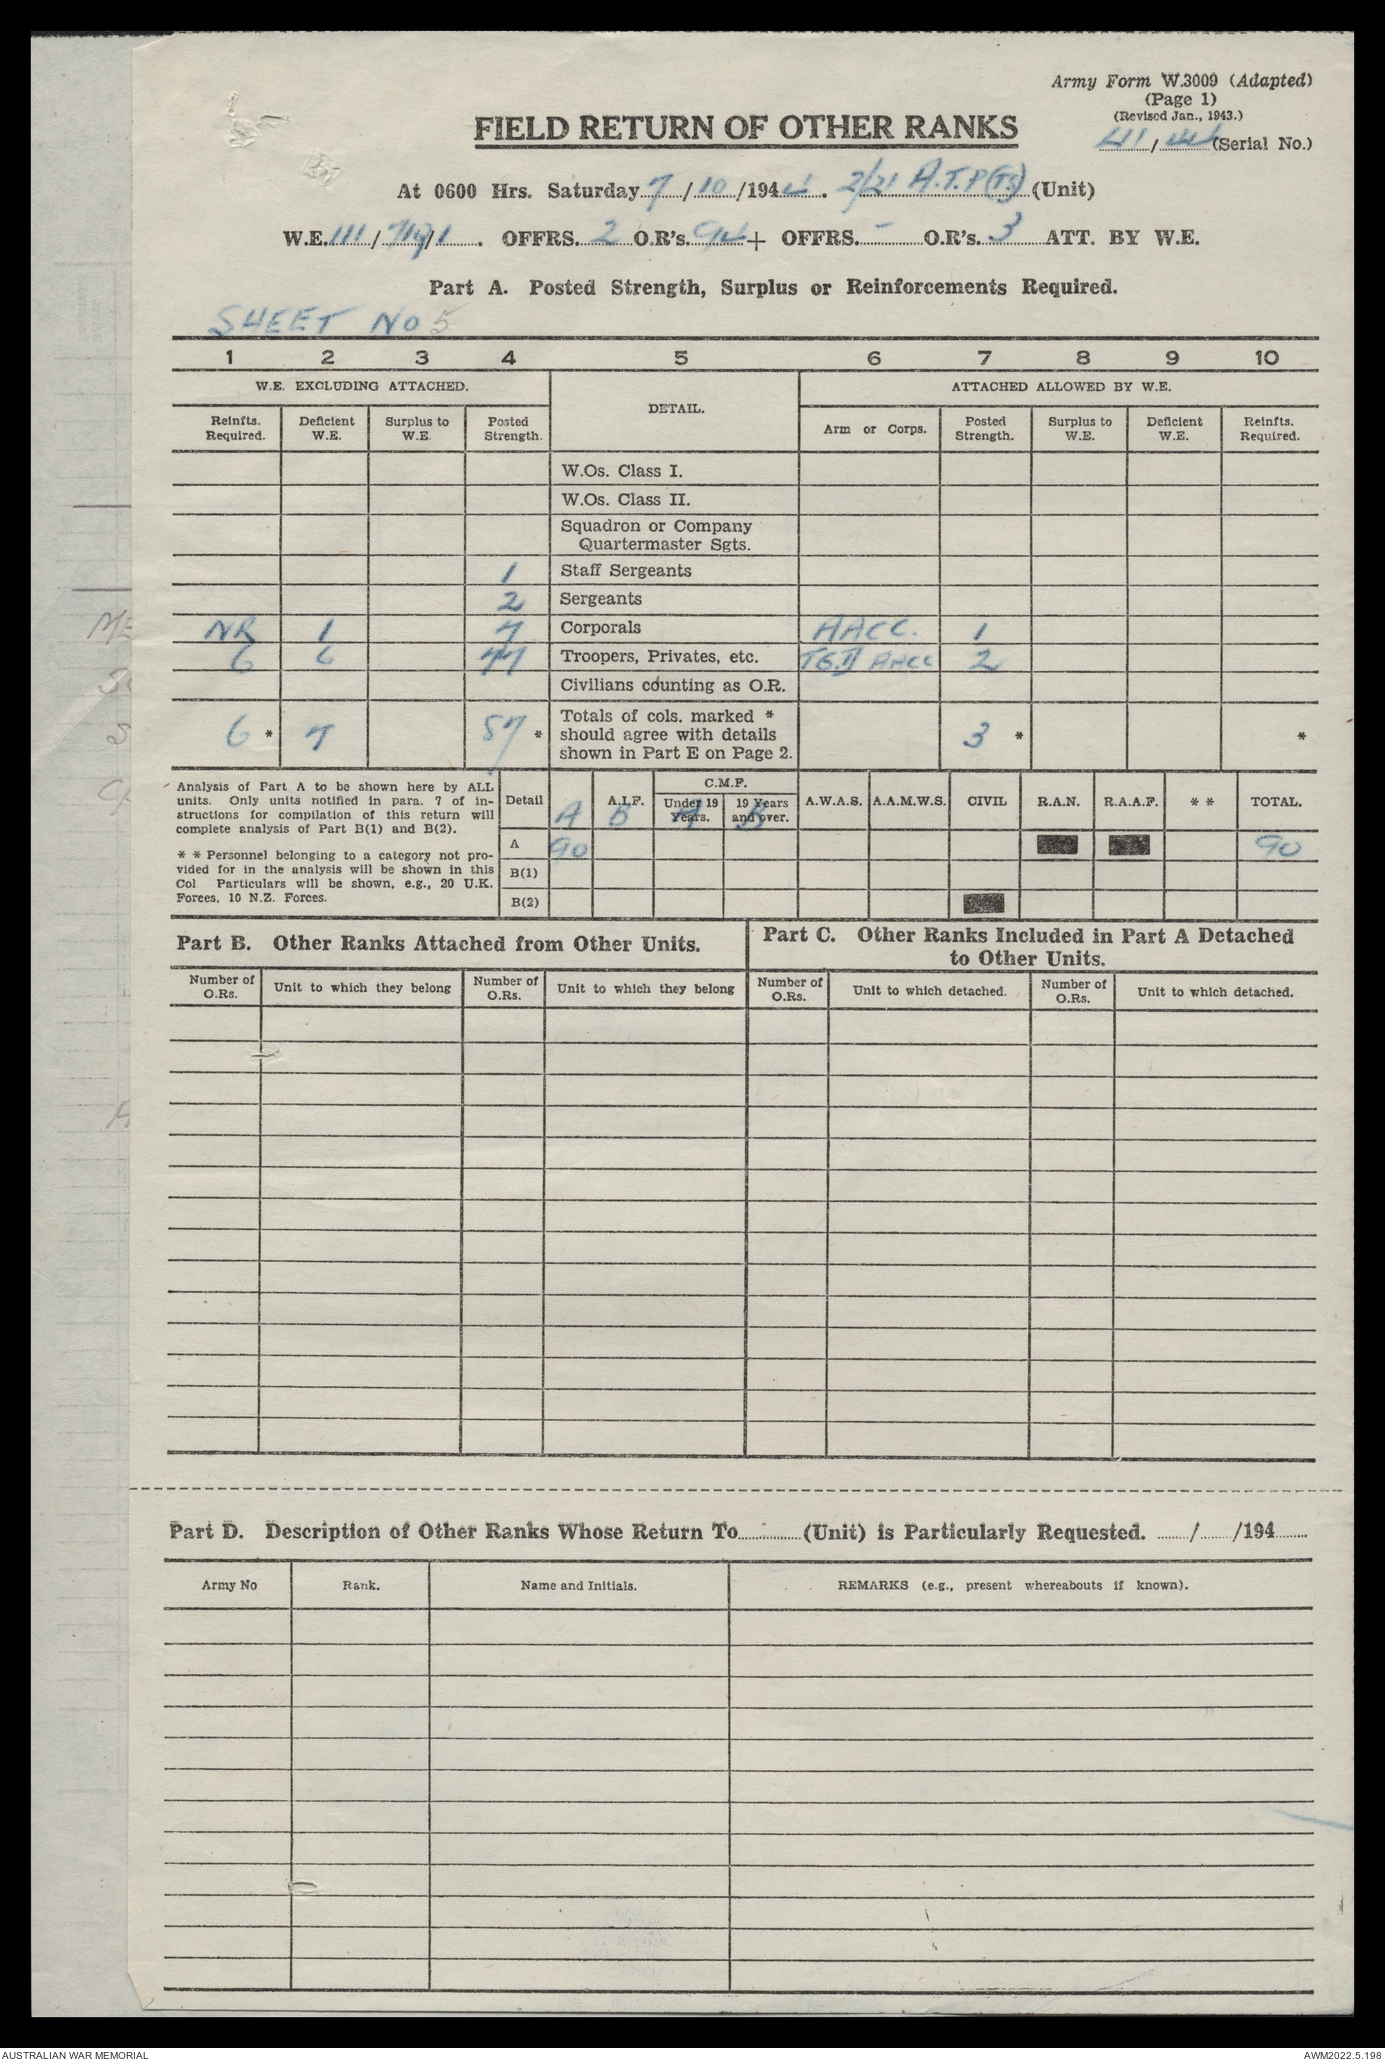 Army Form W.3009 (Adapted)
(Page 1)
(Revised Jan., 1943.)
FIELD RETURN OF OTHER RANKS
41/44 (Serial No.)
At 0600 Hrs. Saturday 7/10/1944. 2/21 A.T.P(TS) (Unit)
W.E. 111/719/1. OFFRS. 2 O.R's. 94 + OFFRS. - O.R's. 3 ATT. BY W.E.
Part A. Posted Strength, Surplus or Reinforcements Required.
SHEET NO 5
1 2 3 4 5 6 7 8 9 10
W.E. EXCLUDING ATTACHED. DETAIL. ATTACHED ALLOWED BY W.E.
Reinfts. Required. Deficient W.E. Surplus to W.E. Posted Strength. Arm or Corps. Posted Strength. Surplus to W.E. Deficient W.E. Reinfts. Required.
W.Os. Class I.
W.Os. Class II.
Squadron or Company
Quartermaster Sgts.
1 Staff Sergeants
2 Sergeants
NR 1 7 Corporals AACC. 1
6 6 77 Troopers, Privates, etc. TG.II AACC 2
Civilians counting as O.R.
6 * 7 87 * Totals of cols. marked * 3 * *
should agree with details
shown in Part E on Page 2.
Analysis of Part A to be shown here by ALL
units. Only units notified in para. 7 of in-
structions for compilation of this return will
complete analysis of Part B(1) and B(2).
* * Personnel belonging to a category not pro-
vided for in the analysis will be shown in this
Col Particulars will be shown, e.g., 20 U.K.
Forces, 10 N.Z. Forces.
C.M.F.
Detail A A.I.F. B Under 19 Years. A 19 Years and over. B A.W.A.S. A.A.M.W.S. CIVIL R.A.N. R.A.A.F. * * TOTAL.
A 90 90
B(1)
B(2)
Part B. Other Ranks Attached from Other Units.
Part C. Other Ranks Included in Part A Detached
to Other Units.
Number of O.Rs. Unit to which they belong Number of O.Rs. Unit to which they belong Number of O.Rs. Unit to which detached. Number of O.Rs. Unit to which detached.
Part D. Description of Other Ranks Whose Return To............(Unit) is Particularly Requested. ....../....../194......
Army No Rank. Name and Initials. REMARKS (e.g., present whereabouts if known).
AUSTRALIAN WAR MEMORIAL
AWM2022.5.198